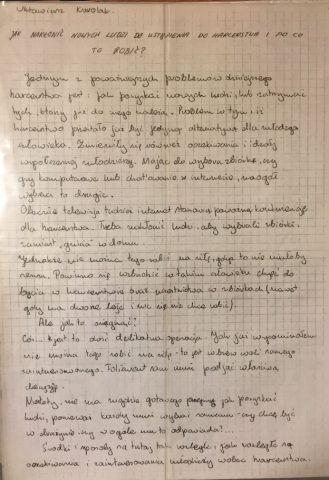 Oktawiusz Karolak.
JAK NAKŁONIĆ NOWYCH LUDZI DO WSTĄPIENIA DO HARCERSTWA I PO CO
TO ROBIĆ?
Jednym z poważniejszych problemów dzisiejszego
harcerstwa jest: jak pozyskać nowych ludzi, lub zatrzymać
tych, którzy już do niego należą. Problem w tym iż
harcerstwo przestało już być jedyną alternatywą dla młodego
człowieka. Zmieniły się również oczekiwania i ideały
współczesnej młodzieży. Mając do wyboru zbiórkę, czy
gry komputerowe lub chat'owanie w internecie, na ogół
wybierze to drugie.
Obecnie telewizja tudzież internet stanowią poważną konkurencję
dla harcerstwa. Trzeba nakłonić ludzi, aby wybrali zbiórki,
zamiast "gnicia" w domu.
Jednakże nie można tego robić na siłę, gdyż to nie miałoby
sensu. Powinno się wzbudzić w takim człowieku chęć do
bycia w harcerstwie oraz uczestnictwa w zbiórkach (nawet
gdy na dworze leje i nic się nie chce robić).
Ale jak to osiągnąć?
Cóż... jest to dość delikatna operacja - Jak już wspomniałem
nie można tego robić na siłę - to jest wbrew woli samego
zainteresowanego. Tolerant sam musi podjąć właściwą
decyzję.
Niestety, nie ma nigdzie gotowego jak pozyskać
ludzi, ponieważ każdy musi wybrać samemu - czy chce być
w drużynie czy w ogóle mu to odpowiada?...
Środki i sposoby są tutaj tak rozległe, jak rozległe są
oczekiwania i zainteresowania młodzieży wobec harcerstwa.